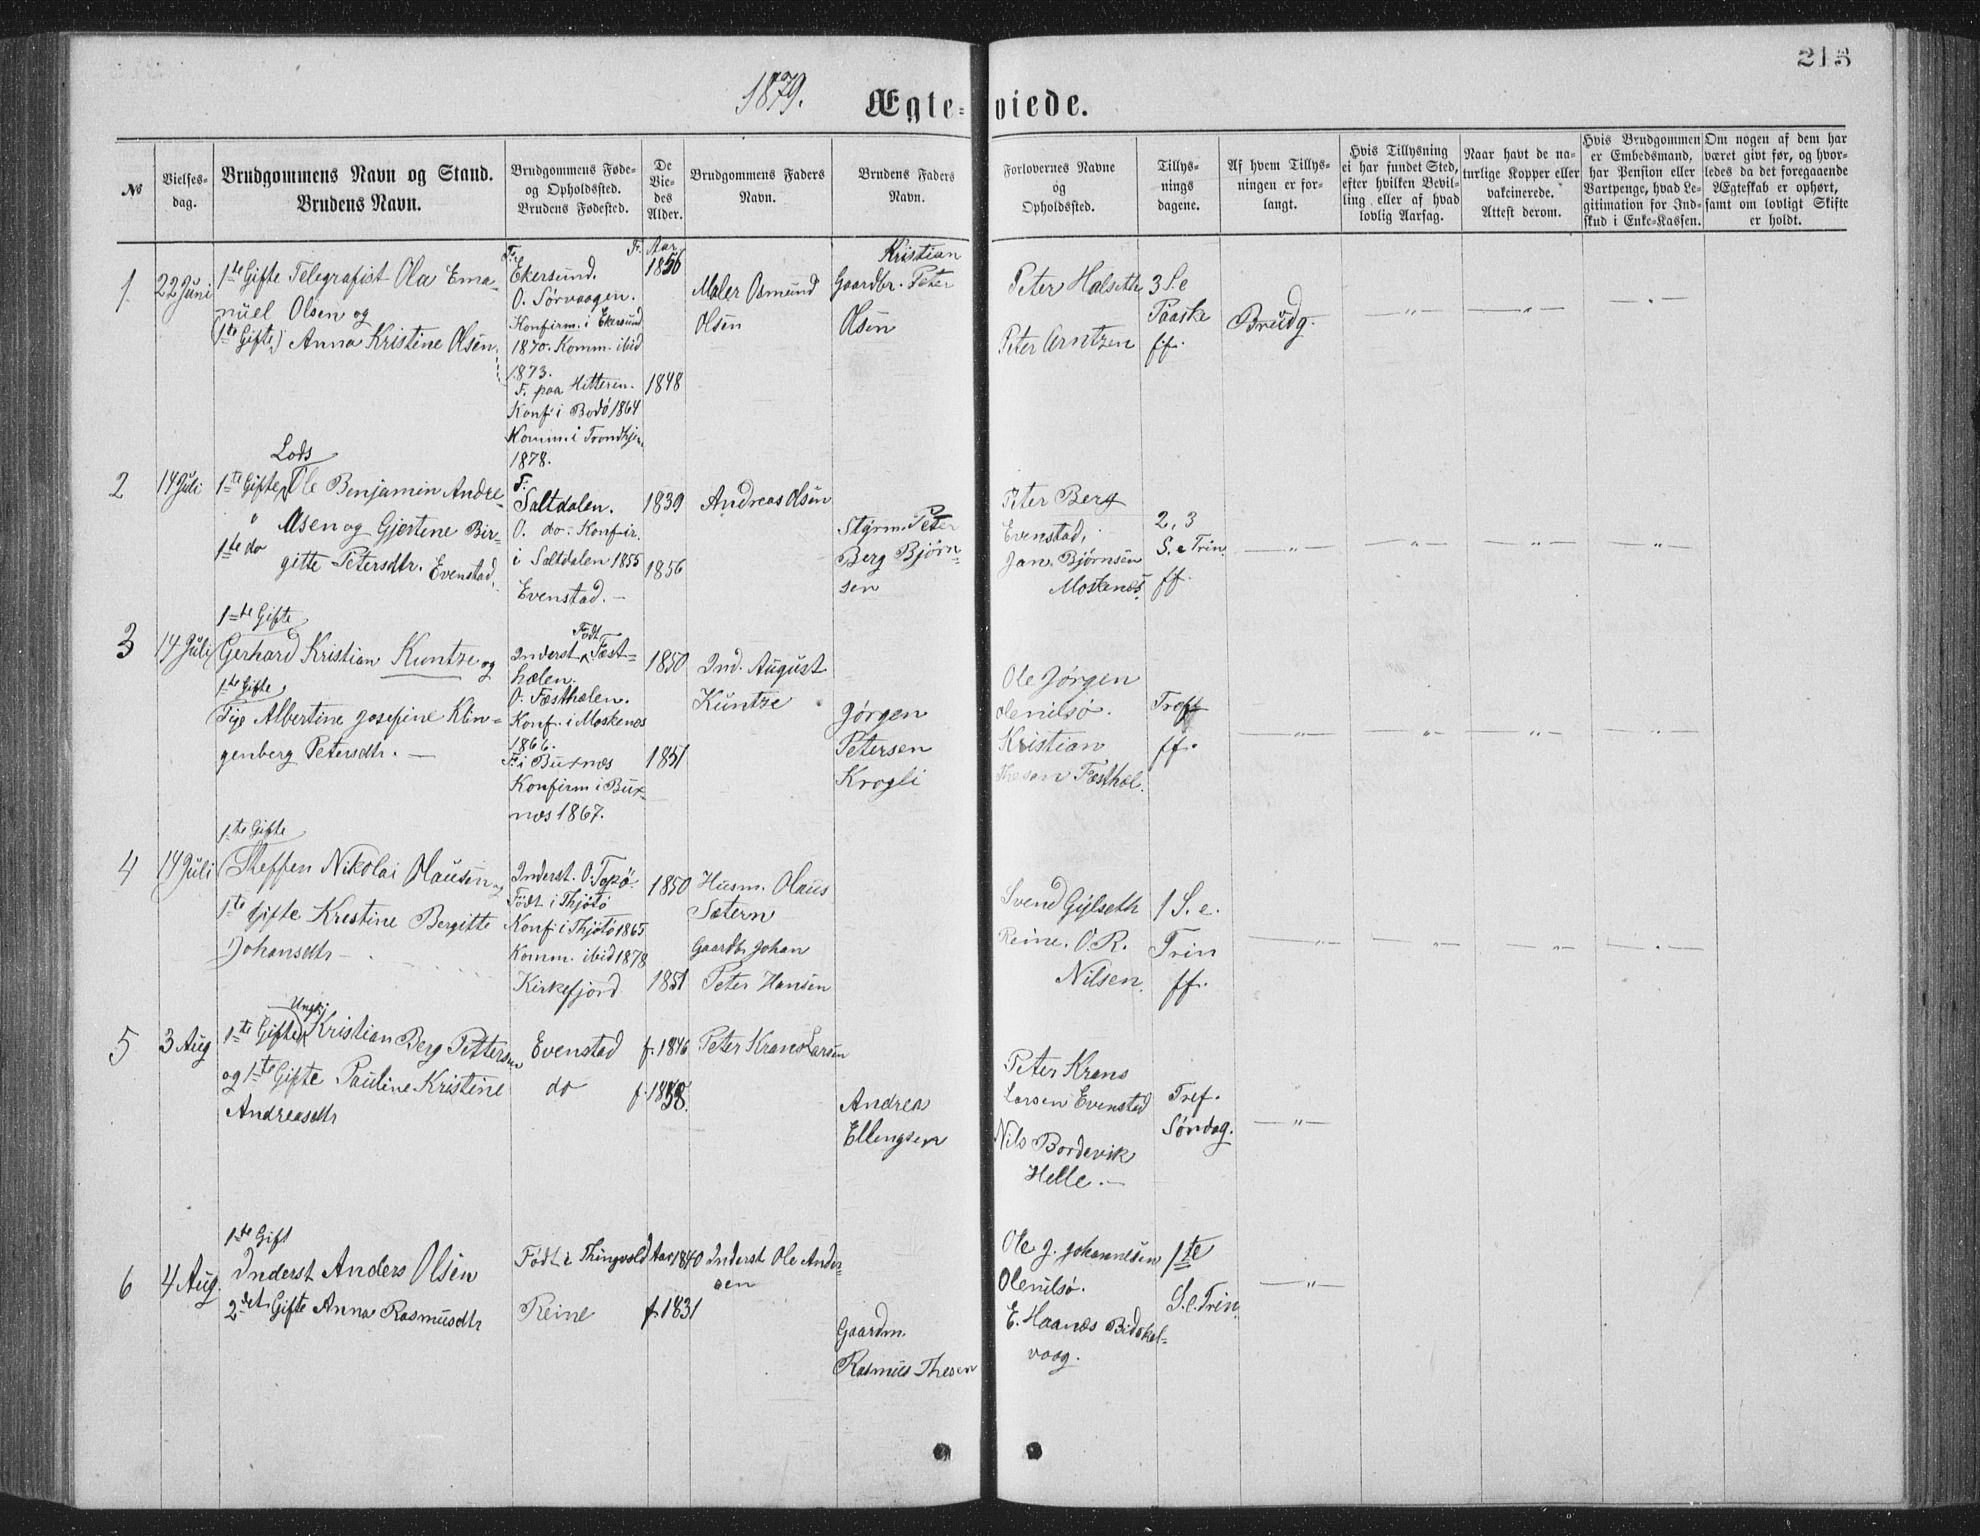 213
1879.
Ægte-viede.
No
Vielses-
dag.
Brudgommens Navn og Stand.
Brudens Navn.
Brudgommens Føde-
og Opholdssted.
Brudens Fødested.
De
Vie-
des
Alder.
Brudgommens Faders
Navn.
Brudens Faders
Navn.
Forlovernes Navne
og
Opholdssted.
Tillys-
nings
dagene.
Af hvem Tillys-
ningen er for-
langt.
Hvis Tillysning
ei har fundet Sted,
efter hvilken Bevil-
ling eller af hvad
lovlig Aarsag.
Naar havt de na-
turlige Kopper eller
vakcinerede.
Attest derom.
Hvis Brudgommen
er Embedsmand,
har Pension eller
Vartpenge, hvad Le-
gitimation for Ind-
skud i Enke-Kassen.
Om nogen af dem har
været givt før, og hvor-
ledes da det foregaaende
Ægteskab er ophørt,
samt om lovligt Skifte
er holdt.
1
22 Juni
1te Gifte Telegrafist Ola Ema-
nuel Olsen og
(1te Gifte) Anna Kristine Olsen
F. i
Ekersund.
O. Sørvaagen.
Konfirm. i Ekersund
1870. Komm. ibid
1873.
F. paa Hitteren.
Konf. i Bodö 1864
Komm. i Trondhjem
1878.
F. Aar
1856
1848
Maler Osmund
Olsen
Kristian
Gaardbr. Peter
Olsen
Peter Halseth
Peter Arntzen
3 S. e
Paaske
ff.
Brudg.
2
14 Juli
Lods
1te Gifte Ole Benjamin Andre-
" Asen og Gjertine Bir-
1te do gitte Petersdtr. Evenstad.
F.
Saltdalen.
O. do. Konfir.
i Saltdalen 1855
Evenstad. —
1839
1856
Andreas Olsen
Styrm. Peter
Berg Bjørn-
sen
Peter Berg
Evenstad,
Jan. Bjørnsen
Moskenes.
2, 3
S. e Trin.
ff.
3
14 Juli
1te Gifte
Gerhard Kristian Kuntze og
1te Gifte
Pige Albertine Josefine Klin-
genberg Petersdtr. —
Født
Inderst Fæst-
hælen.
O. Fæsthælen.
Konf. i Moskenes
1866.
F. i Buxnæs
Konfirm i Bux-
næs 1867.
1850
1851
Ind. August
Kuntze
Jørgen
Petersen
Krogli
Ole Jørgen
Olenilsö.
Kristian
Thesen Fæsthel.
Tref
ff.
4
14 Juli
1te Gifte
Steffen Nikolai Olausen og
1te Gifte Kristine Bergitte
Johansdtr —
Inderst. O. Topö.
Födt i Thjötö
Konf. i Thjötö 1865
Komm. ibid 1878
Kirkefjord
1850
1851
Husm. Olaus
Sætern
Gaardbr Johan
Peter Hansen
Svend Gylseth
Reine. O. R.
Nilsen.
1 S. e.
Trin
ff.
5
3 Aug
Ungk.
1te Gifte Kristian Berg Pettersen
og 1te Gifte Pauline Kristine
Andreasdtr
Evenstad
do
f. 1846
f. 1858.
Peter Krans Larsen
Andreas
Ellingsen
Peter Krans
Larsen Evenstad
Nils Bordevik
Helle. —
Tref.
Søndag.
6
4 Aug.
1te Gift
Inderst Anders Olsen
2det Gifte Anna Rasmusdtr
Födt i Thingvold Aar 1840
Reine
f. 1831
Inderst Ole Ander-
sen
Gaardm.
Rasmus Thesen
Ole J. Johannesen
Olenilsö.
E. Haanæs Bidskel-
vaag.
1te
S. e. Trin.